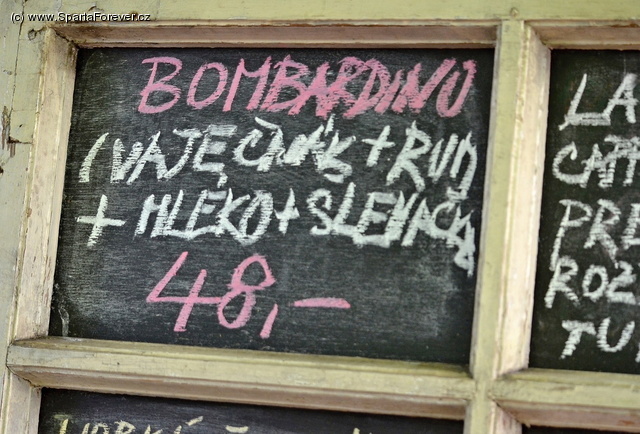 (c) www.SpartaForever.cz
BOMBARDINO
(VAJEČŇÁK + RUM
+ MLÉKO + ŠLEHAČKA
48,-
LA
CAPP
PRE
ROZ
TU